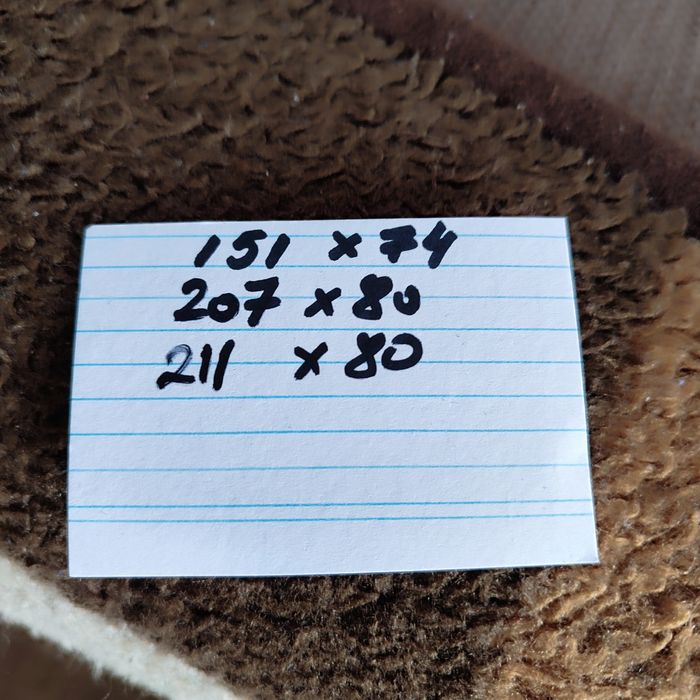 151 x 74
207 x 80
211 x 80